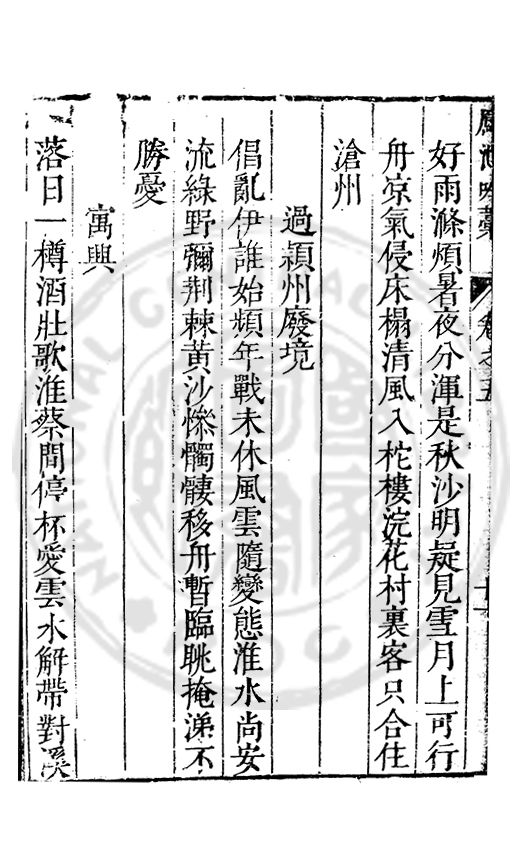 鳳池吟藁 卷之五
好雨滌煩暑夜分渾是秋沙明疑見雪月上可行
舟凉氣侵床榻清風入柁樓浣花村裏客只合住
滄州
過潁州廢境
倡亂伊誰始頻年戰未休風雲隨變態淮水尚安
流綠野彌荆棘黃沙慘髑髏移舟暫臨眺掩涕不
勝憂
寓興
落日一樽酒壯歌淮蔡間停杯愛雲水解帶對溪